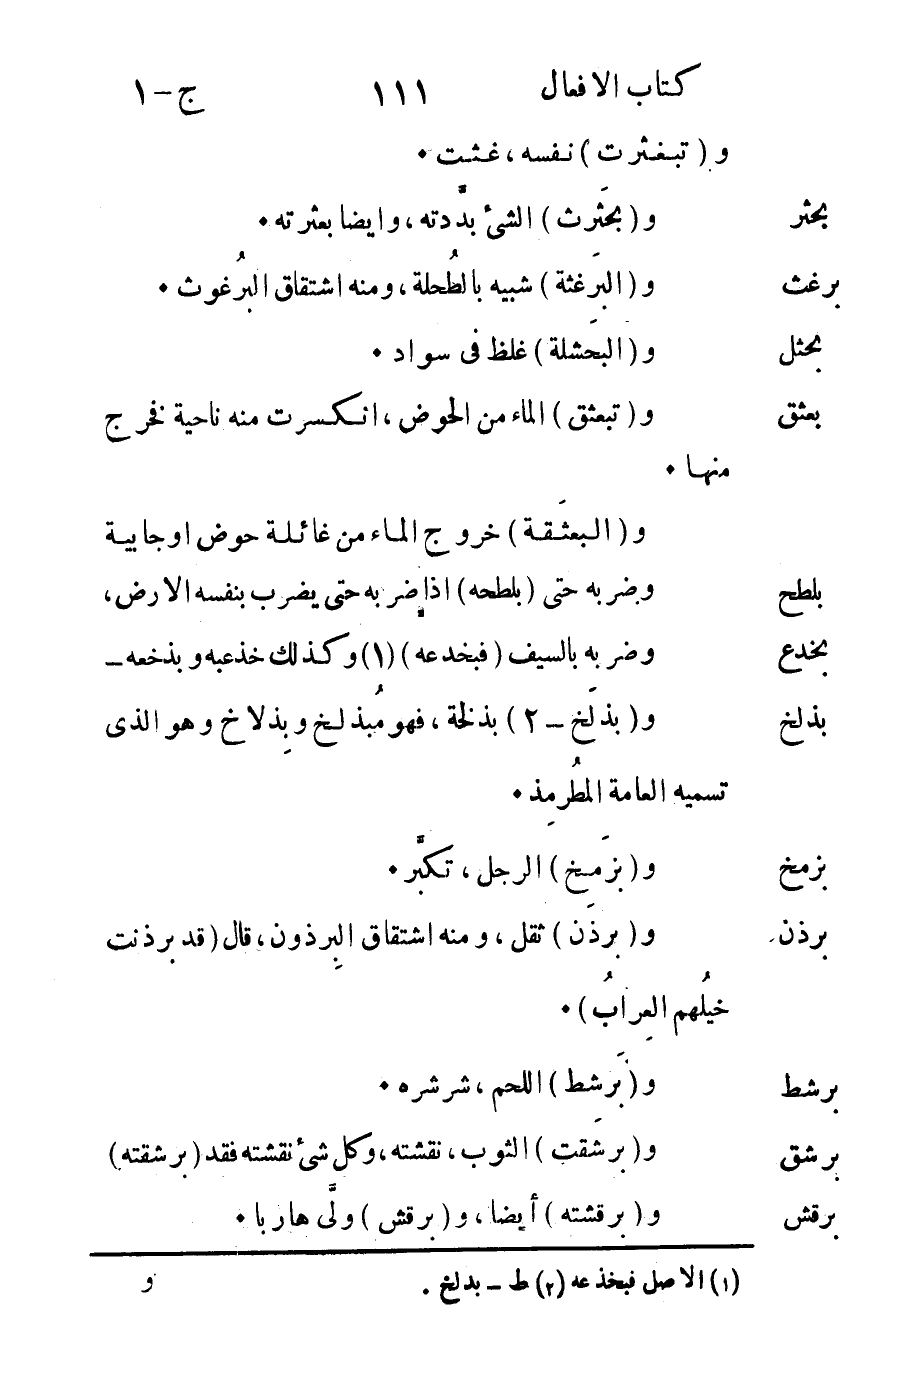 كتاب الافعال ١١١ ج-١
و (تبغثرت) نفسه، غثت ٠
بحثر و (بحثَرت) الشئ بدَّدته، وايضا بعثرته ٠
برغث و (البَرغثة) شبيه بالطُحلة، ومنه اشتقاق البُرغوث ٠
بحثل و (البَحشلة) غلظ فى سواد ٠
بعثق و (تبعثق) الماء من الحوض، انكسرت منه ناحية فخرج
منها ٠
و (البعثَقة) خروج الماء من غائلة حوض او جابية
بلطح وضربه حتى (بلطحه) اذا ضربه حتى يضرب بنفسه الارض،
بخدع وضربه بالسيف (فبخدعه) (١) وكذلك خذعبه وبذخعه ــ
بذلخ و (بذلَخ ــ ٢) بذلخة، فهو مُبذلخ وبِذلاخ وهو الذى
تسميه العامة المُطرمِذ ٠
بزمخ و (بزمَخ) الرجل، تكبَّر ٠
برذن و (برذَن) ثقل، ومنه اشتقاق البِرذون، قال (قد برذنت
خيلُهم العِرابُ) ٠
برشط و (بَرشط) اللحم، شرشره ٠
برشق و (برشَقت) الثوب، نقشته، وكل شئ نقشته فقد (برشقته)
برقش و (برقشته) أيضا، و (برقش) ولَّى هاربا ٠
(١) الاصل فبخذعه (٢) ط ــ بدلخ .
و